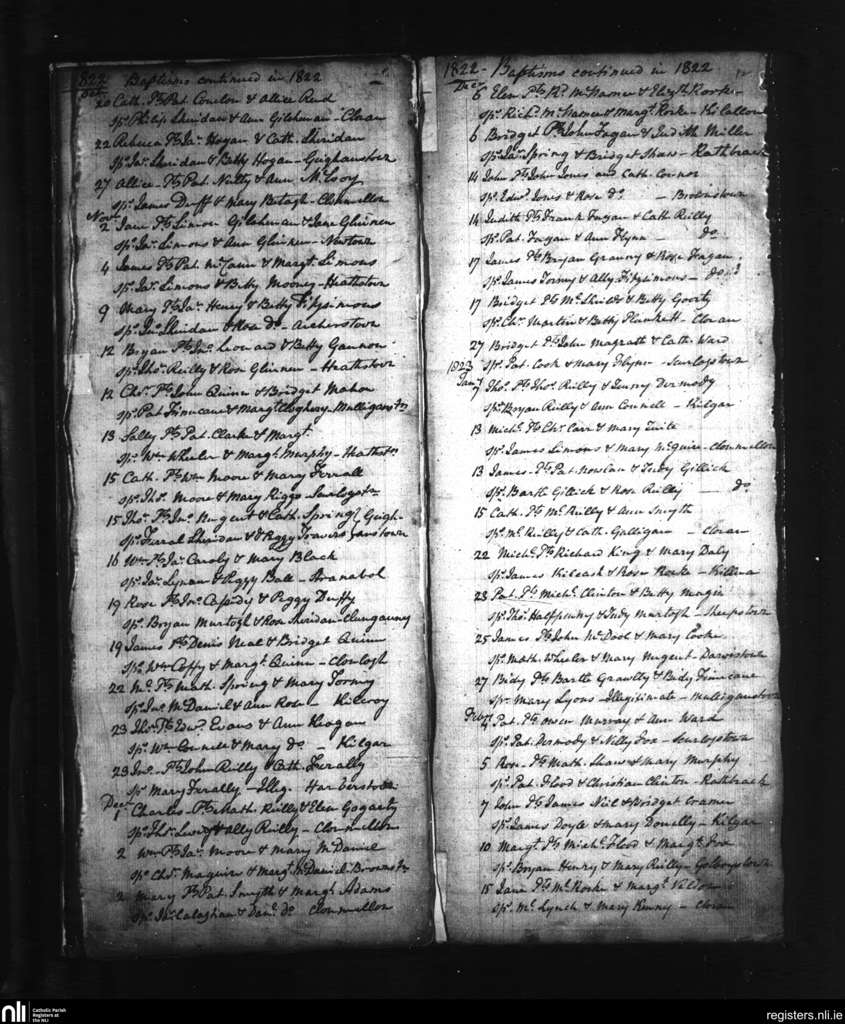 1822 Baptisms continued in 1822
Oct.
20 Cath. Ps Pat. Conlon & Allice Reid
Sps Philip Sheridan & Ann Gilchman - Cloran
22 Rebecca Ps Jas. Hogan & Cath. Sheridan
Sps Jas. Sheridan & Betty Hogan - Geighanstown
27 Allice Ps Pat. Nulty & Ann McEvoy
Sps James Duff & Mary Betagh - Clonmellon
Novr
2 Jane Ps Simon Gilchman & Jane
Sps Jn. Simons & Ann - Newtown
4 James Ps Pat. & Margt. Simons
Sps Jas. Simons & Betty Mooney - Heathstown
9 Mary Ps Jas. Henry & Betty Fitzsimons
Sps Jno. Sheridan & Rose do - Archerstown
12 Bryan Ps Jno. Leonard & Betty Gannon
Sps Thos. Reilly & Rose - Heathstown
12 Chrs. Ps John Quinn & Bridget Mahon
Sps Pat Finucane & Margt. - Mulliganstn
13 Sally Ps Pat. Clarke & Margt.
Sps Wm Wheeler & Margt. Murphy - Heathstn
15 Cath. Ps Wm Moore & Mary Ferrall
Sps Thos. Moore & Mary Riggs - Scurlogstn
15 Thos. Ps Jno. Nugent & Cath. Spring Geigh-
Sps Farral Sheridan & Peggy Travers anstown
16 Wm Ps Jas. Caroly & Mary Black
Sps Jas. Lynan & Peggy Ball -
19 Rose Ps Jno. Cassidy & Peggy Duffy
Sps Bryan Murtogh & Rose Sheridan -
19 James Ps Denis Neal & Bridget Quinn
Sps Wm Coffy & Margt. Quinn -
22 Ms. Ps Math. Spring & Mary Tormy
Sps Jas. McDaniel & Ann Rose - Kilroy
23 Thos. Ps Edwd. Evans & Ann Keogan
Sps Wm Connell & Mary do - Kilgar
23 Jno. Ps John Reilly & Cath. Ferally
Sps Mary Ferally - Illeg. Harberstown
Decr
1 Charles Ps Math. Reilly & Elen Gogarty
Sps Thos. & Ally Reilly - Clonmellon
2 Wm Ps Jas. Moore & Mary McDaniel
Sps Chrs. Maguire & Margt. McDaniel Browns Tn
2 Mary Ps Pat. Smyth & Margt. Adams
Sps Jas. Calaghan & do Clonmellon
1822 - Baptisms continued in 1822
Decr
6 Elen Ps Rd. McNamee & Elizth. Rorke
Sps Richd. McNamee & Margt. Rorke - Killallon
6 Bridget Ps John Fagan & Judith Miller
Sps Jas. Spring & Bridget Shaw - Rathbrack
14 John Ps John Jones and Cath. Connor
Sps Edwd. Jones & Rose do - Brownstown
14 Judith Ps Frank Fagan & Cath. Reilly
Sps Pat. Fagan & Ann Flynn - do
17 James Ps Bryan Granny & Rose Fagan
Sps James Tormy & Ally Fitzsimons - do
17 Bridget Ps Ms. Shields & Betty Goorty
Sps Chrs. Martin & Betty Plunkett - Cloran
27 Bridget Ps John Magrath & Cath. Ward
Sps Pat. Cook & Mary Flynn - Scurlogstown
1823
Jany
7 Thos. Ps Thos. Reilly & Jenny Dermody
Sps Bryan Reilly & Ann Connell - Kilgar
13 Michl. Ps Chrs. Carr & Mary Tuite
Sps James Simons & Mary McGuire - Clonmellon
13 James Ps Pat. Nowlan & Judy Gillick
Sps Bartle Gillick & Rose Reilly - do
15 Cath. Ps Ms. Reilly & Ann Smyth
Sps Ms. Reilly & Cath. Galligan - Cloran
22 Michl. Ps Richard King & Mary Daly
Sps James Kilcash & Rose Rorke - Killina
23 Pat. Ps Michl. Clinton & Betty Magin
Sps Thos. Halfpenny & Judy Murtogh - Sheepstown
25 James Ps John McDool & Mary Cooke
Sps Math. Wheeler & Mary Nugent - Darvistown
27 Bidy Ps Bartle Grawtly & Bidy Finucane
Sps Mary Lyons - Illegitimate - Mulliganstown
Feby
4 Pat. Ps Owen Murray & Ann Ward
Sps Pat. Dermody & Nelly Fox - Scurlogstown
5 Rose Ps Math. Shaw & Mary Murphy
Sps Pat. Flood & Christian Clinton - Rathbrack
7 John Ps James Niel & Bridget Cramer
Sps James Doyle & Mary Donelly - Kilgar
10 Margt. Ps Michl. Flood & Margt. Fox
Sps Bryan Henry & Mary Reilly -
15 Jane Ps Ms. Rorke & Margt. Veldon
Sps Ms. Lynch & Mary Kenny - Cloran
nli Catholic Parish
Registers at
the NLI
registers.nli.ie